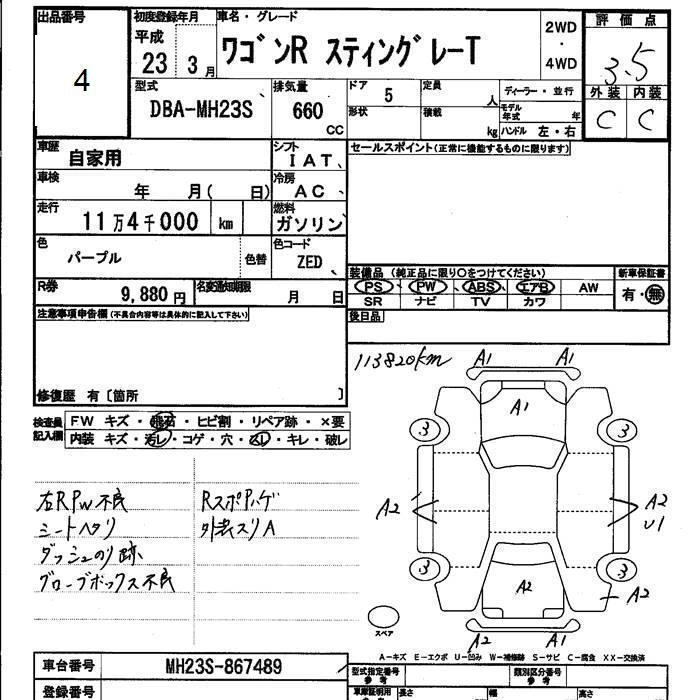 出品番号
4
初度登録年月
平成
23 3 月
車名・グレード
ワゴンR スティングレーT
2WD
・
4WD
評価点
3.5
外装 内装
C C
型式
DBA-MH23S
排気量
660
CC
ドア
5
形状
定員
人
積載
kg
ディーラー・並行
モデル年式 年
ハンドル 左・右
車歴
自家用
シフト
IAT
セールスポイント(正常に機能するものに限ります)
車検
年 月( 日)
冷房
AC
走行
11万4千000 km
燃料
ガソリン
色
パープル
色替
色コード
ZED
装備品 (純正品に限り○をつけてください)
PS PW ABS エアB AW
SR ナビ TV カワ
新車保証書
有・無
R券
9,880 円
名変通知期限
月 日
後日品
注意事項申告欄(不具合内容等は具体的に記入して下さい)
修復歴 有〔箇所 〕
検査員記入欄
FW キズ・飛石・ヒビ割・リペア跡・×要
内装 キズ・汚レ・コゲ・穴・スレ・キレ・破レ
113820km
A1 A1
A1
3 3
A2
A2
U1
3 3
A2
A2
A2 A1
スペア
左RPW不良
シートヘタリ
ダッシュのり跡
グローブボックス不良
外装スリA
A-キズ E-エクボ U-凹み W-補修跡 S-サビ C-腐食 XX-交換済
車台番号
MH23S-867489
登録番号
型式指定番号
参考
類別区分番号
参考
車庫証明用
長さ
幅
高さ